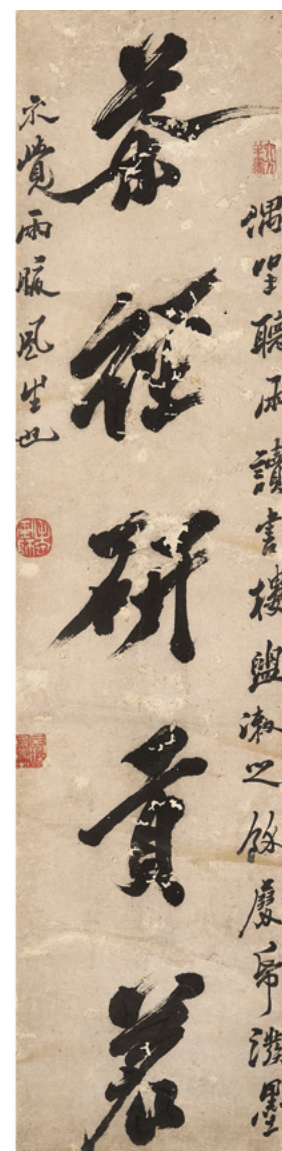 偶坐聽雨讀書樓盥漱之餘展帋潑墨
茶經研貢茗
亦覺兩腋風生也